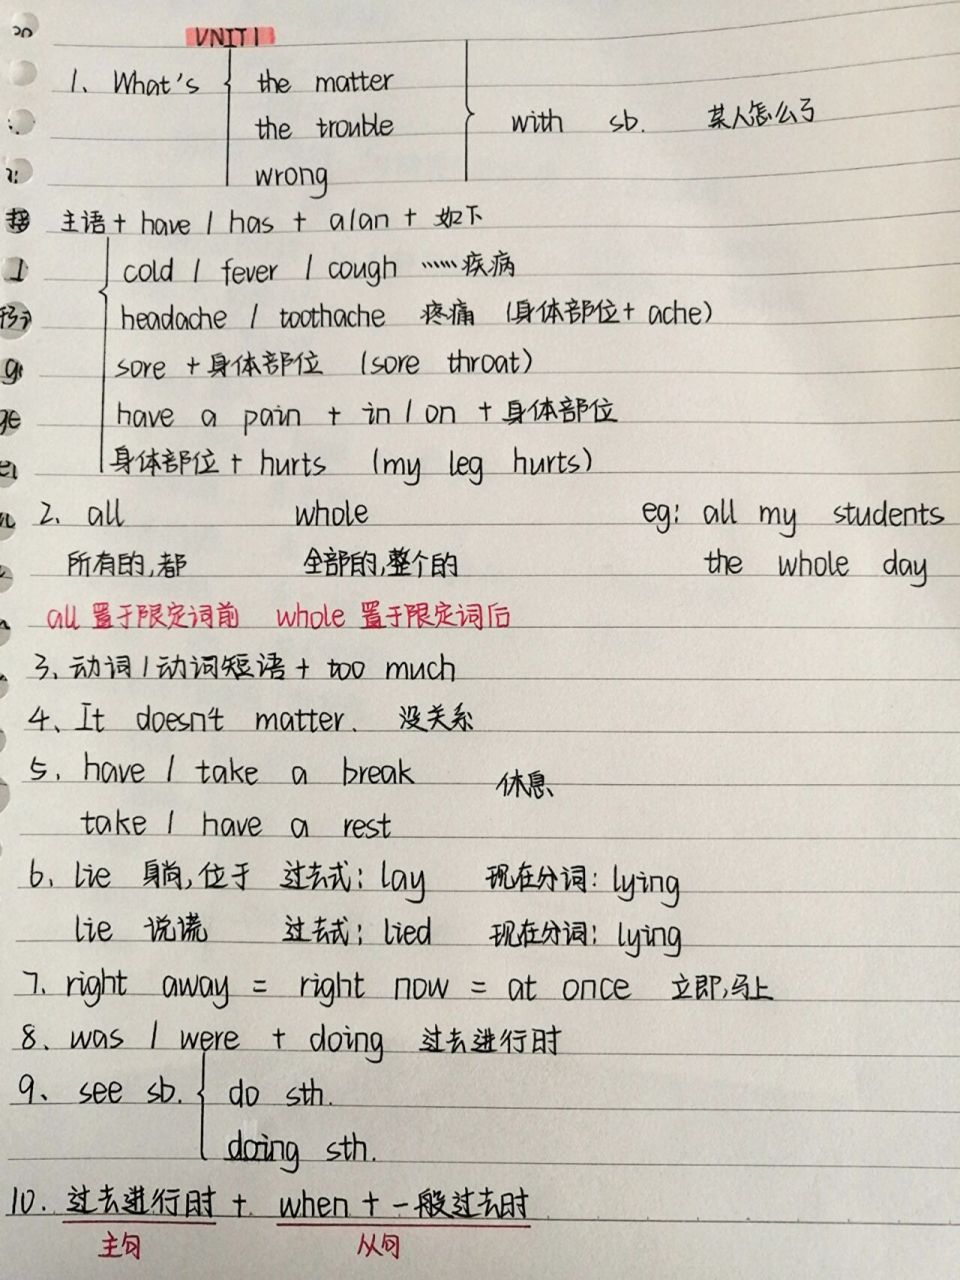 UNIT 1
1、What's { the matter
the trouble } with sb. 某人怎么了
wrong
主语 + have / has + a/an + 如下
cold / fever / cough ……疾病
headache / toothache 疼痛 (身体部位 + ache)
sore + 身体部位 (sore throat)
have a pain + in / on + 身体部位
身体部位 + hurts (my leg hurts)
2、all whole eg: all my students
所有的,都 全部的,整个的 the whole day
all 置于限定词前 whole 置于限定词后
3、动词 / 动词短语 + too much
4、It doesn't matter. 没关系
5、have / take a break 休息
take / have a rest
6、lie 身尚,位于 过去式: lay 现在分词: lying
lie 说谎 过去式: lied 现在分词: lying
7、right away = right now = at once 立即,马上
8、was / were + doing 过去进行时
9、see sb. { do sth.
doing sth.
10. 过去进行时 + when + 一般过去时
主句 从句